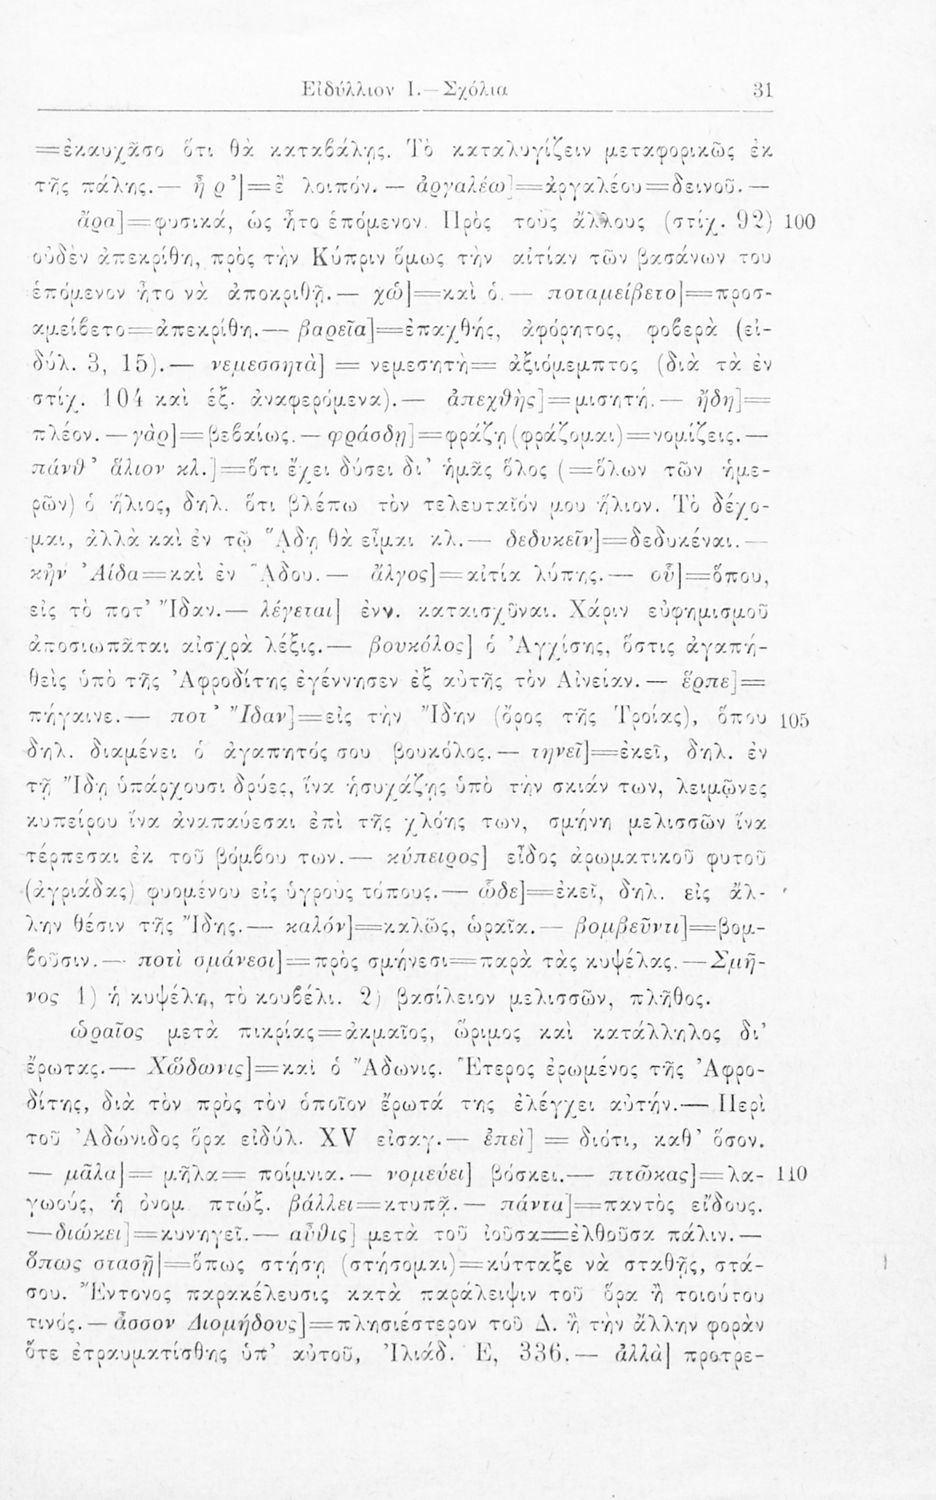 Εἰδύλλιον Ι.—Σχόλια 31
=ἐκαυχᾶσο ὅτι θὰ καταβάλῃς. Τὸ καταλυγίζειν μεταφορικῶς ἐκ
τῆς πάλης.— ἦ ῥ᾿]=ἒ λοιπόν. — ἀργαλέω]=ἀργαλέου=δεινοῦ. —
ἄρα]=φυσικά, ὡς ἦτο ἑπόμενον. Πρὸς τοὺς ἄλλους (στίχ. 92) 100
οὐδὲν ἀπεκρίθη, πρὸς τὴν Κύπριν ὅμως τὴν αἰτίαν τῶν βασάνων του
ἑπόμενον ἦτο νὰ ἀποκριθῇ.— χὠ]=καὶ ὁ.— ποταμείβετο]=προσ-
αμείβετο=ἀπεκρίθη.— βαρεῖα]=ἐπαχθής, ἀφόρητος, φοβερὰ (εἰ-
δύλ. 3, 15).— νεμεσσητὰ] = νεμεσητὴ= ἀξιόμεμπτος (διὰ τὰ ἐν
στίχ. 104 καὶ ἑξ. ἀναφερόμενα).— ἀπεχθὴς]=μισητή.— ἤδη]=
πλέον. —γὰρ]=βεβαίως.— φράσδῃ]=φράζῃ (φράζομαι)=νομίζεις.—
πάνθ᾿ ἅλιον κλ.]=ὅτι ἔχει δύσει δι᾿ ἡμᾶς ὅλος (=ὅλων τῶν ἡμε-
ρῶν) ὁ ἥλιος, δηλ. ὅτι βλέπω τὸν τελευταῖόν μου ἥλιον. Τὸ δέχο-
μαι, ἀλλὰ καὶ ἐν τῷ ῞Αδῃ θὰ εἶμαι κλ.— δεδυκεῖν]=δεδυκέναι.—
κἠν ᾿Αΐδα=καὶ ἐν ῞Αδου.— ἄλγος]=αἰτία λύπης.— οὗ]=ὅπου,
εἰς τὸ ποτ᾿ ῎Ιδαν.— λέγεται] ἐνν. καταισχῦναι. Χάριν εὐφημισμοῦ
ἀποσιωπᾶται αἰσχρὰ λέξις.— βουκόλος] ὁ ᾿Αγχίσης, ὅστις ἀγαπη-
θεὶς ὑπὸ τῆς ᾿Αφροδίτης ἐγέννησεν ἐξ αὐτῆς τὸν Αἰνείαν.— ἕρπε]=
πήγαινε.— ποτ᾿ ῎Ιδαν]=εἰς τὴν ῎Ιδην (ὄρος τῆς Τροίας), ὅπου 105
δηλ. διαμένει ὁ ἀγαπητός σου βουκόλος.— τηνεῖ]=ἐκεῖ, δηλ. ἐν
τῇ ῎Ιδῃ ὑπάρχουσι δρύες, ἵνα ἡσυχάζῃς ὑπὸ τὴν σκιάν των, λειμῶνες
κυπείρου ἵνα ἀναπαύεσαι ἐπὶ τῆς χλόης των, σμήνη μελισσῶν ἵνα
τέρπεσαι ἐκ τοῦ βόμβου των.— κύπειρος] εἶδος ἀρωματικοῦ φυτοῦ
(ἀγριάδας) φυομένου εἰς ὑγροὺς τόπους.— ὧδε]=ἐκεῖ, δηλ. εἰς ἄλ-
λην θέσιν τῆς ῎Ιδης.— καλόν]=καλῶς, ὡραῖα.— βομβεῦντι]=βομ-
βοῦσιν.— ποτὶ σμάνεσι]=πρὸς σμήνεσι=παρὰ τὰς κυψέλας.—Σμῆ-
νος 1) ἡ κυψέλη, τὸ κουβέλι. 2) βασίλειον μελισσῶν, πλῆθος.
ὡραῖος μετὰ πικρίας=ἀκμαῖος, ὥριμος καὶ κατάλληλος δι᾿
ἔρωτας.— Χὤδωνις]=καὶ ὁ ῎Αδωνις. ῞Ετερος ἐρωμένος τῆς ᾿Αφρο-
δίτης, διὰ τὸν πρὸς τὸν ὁποῖον ἔρωτά της ἐλέγχει αὐτήν.— Περὶ
τοῦ ᾿Αδώνιδος ὅρα εἰδύλ. XV εἰσαγ.— ἐπεὶ] = διότι, καθ᾿ ὅσον.
— μᾶλα]= μῆλα= ποίμνια.— νομεύει] βόσκει.— πτῶκας]=λα- 110
γωούς, ἡ ὀνομ. πτώξ. βάλλει=κτυπᾷ.— πάντα]=παντὸς εἴδους.
—διώκει]=κυνηγεῖ.— αὖθις] μετὰ τοῦ ἰοῦσα=ἐλθοῦσα πάλιν.—
ὅπως στασῇ]=ὅπως στήσῃ (στήσομαι)=κύτταξε νὰ σταθῇς, στά-
σου. ῎Εντονος παρακέλευσις κατὰ παράλειψιν τοῦ ὅρα ἢ τοιούτου
τινός.— ἆσσον Διομήδους]=πλησιέστερον τοῦ Δ. ἢ τὴν ἄλλην φορὰν
ὅτε ἐτραυματίσθης ὑπ᾿ αὐτοῦ, ᾿Ιλιάδ. Ε, 336.— ἀλλὰ] προτρε-